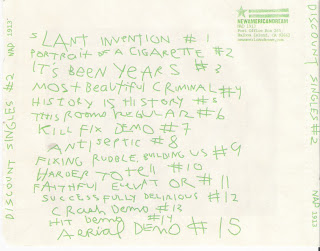 SLANT INVENTION #1
PORTRAIT OF A CIGARETTE #2
IT'S BEEN YEARS #3
MOST BEAUTIFUL CRIMINAL #4
HISTORY IS HISTORY #5
THIS ROOMS REGULAR #6
KILL FIX DEMO #7
ANTISEPTIC #8
FIXING RUBBLE, BUILDING US #9
HARDER TO TELL #10
FAITHFUL OR #11
SUCCESSFULLY DELIRIOUS #12
CRASH DEMO #13
HIT DEMO #14
AERIAL DEMO #15
NEWAMERICANDREAM
NAD 1913
Post Office Box
DISCOUNT SINGLES #2
NAD 1913
DISCOUNT SINGLES #2 NAD 1913